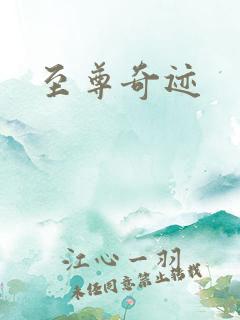 至尊奇迹
江心一羽
未经同意禁止转载